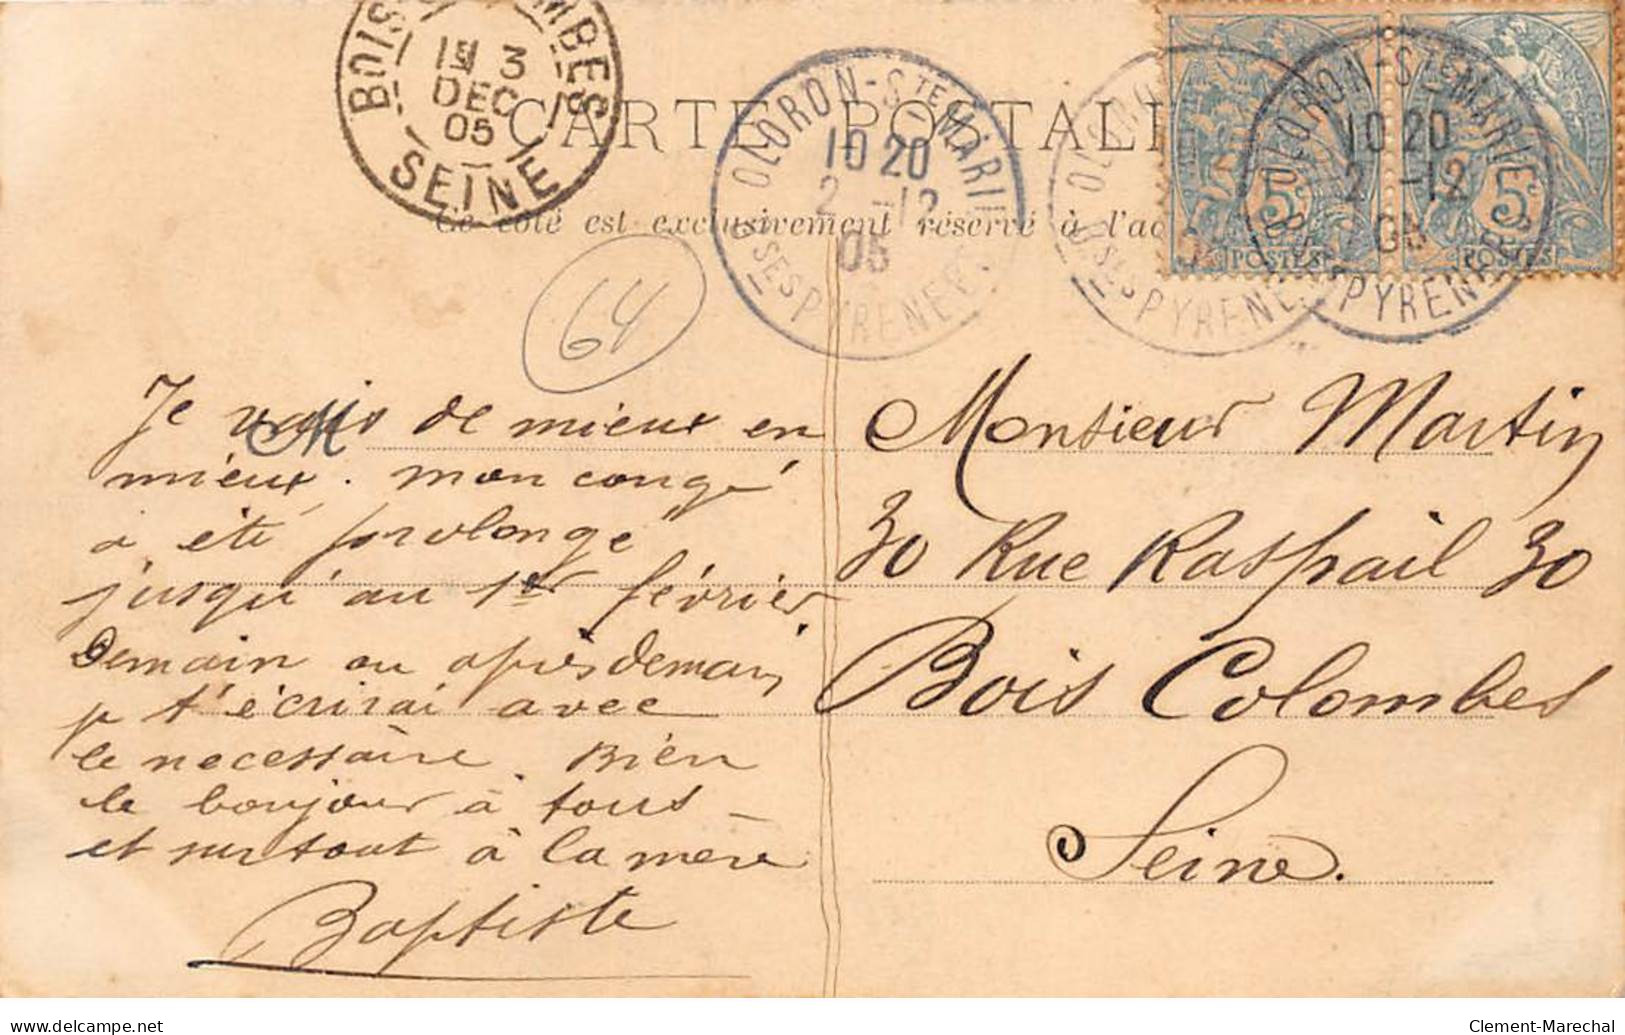 BOIS COLOMBES
1E 3
DEC
05
SEINE
CARTE POSTALE
Ce côté est exclusivement réservé à l'ad
OLORON-STE MARIE
10 20
2 -12
05
BSES PYRENEES
OLORON
BSES PYRENEES
OLORON-STE MARIE
10 20
2 -12
05
BSES PYRENEES
5c
POSTES
5c
POSTES
64
M
Je vais de mieux en
mieux. mon congé
a été prolongé
jusqu'au 1er février
Demain ou après demain
je t'écrirai avec
le necessaire. Bien
le bonjour à tous _
et surtout à la mère
Baptiste
Monsieur Martin
30 Rue Raspail 30
Bois Colombes
Seine.
Clement-Marechal
delcampe.net